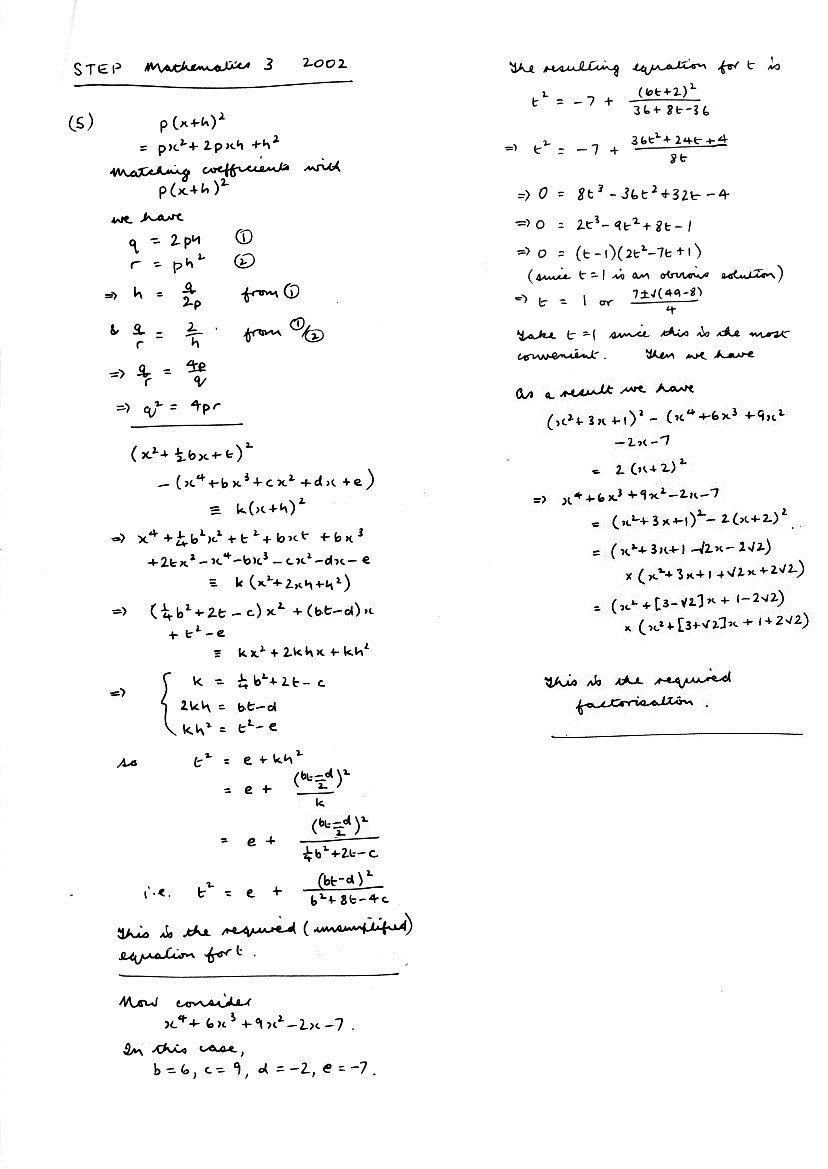 STEP Mathematics 3 2002
(5) p(x+h)²
= px²+2pxh+h²
Matching coefficients with
p(x+h)²
we have
q = 2ph ①
r = ph² ②
⇒ h = q/2p from ①
& q/r = 2/h . from ①/②
⇒ q/r = 4p/q
⇒ q² = 4pr
(x²+½bx+t)²
-(x⁴+bx³+cx²+dx+e)
≡ k(x+h)²
⇒ x⁴+¼b²x²+t²+bxt+bx³
+2tx²-x⁴-bx³-cx²-dx-e
≡ k(x²+2xh+h²)
⇒ (¼b²+2t-c)x²+(bt-d)x
+t²-e
≡ kx²+2khx+kh²
⇒ { k = ¼b²+2t-c
2kh = bt-d
kh² = t²-e
so t² = e+kh²
= e + ((bt-d)/2)²/k
= e + ((bt-d)/2)²/(¼b²+2t-c)
i.e. t² = e + (bt-d)²/(b²+8t-4c)
This is the required (unsimplified)
equation for t.
Now consider
x⁴+6x³+9x²-2x-7.
In this case,
b=6, c=9, d=-2, e=-7.
The resulting equation for t is
t² = -7 + (6t+2)²/(36+8t-36)
⇒ t² = -7 + (36t²+24t+4)/8t
⇒ 0 = 8t³-36t²+32t-4
⇒ 0 = 2t³-9t²+8t-1
⇒ 0 = (t-1)(2t²-7t+1)
(since t=1 is an obvious solution)
⇒ t = 1 or (7±√(49-8))/4
Take t=1 since this is the most
convenient. Then we have
As a result we have
(x²+3x+1)²-(x⁴+6x³+9x²
-2x-7
= 2(x+2)²
⇒ x⁴+6x³+9x²-2x-7
= (x²+3x+1)²-2(x+2)².
= (x²+3x+1-√2x-2√2)
×(x²+3x+1+√2x+2√2)
= (x²+[3-√2]x+1-2√2)
×(x²+[3+√2]x+1+2√2)
This is the required
factorisation.